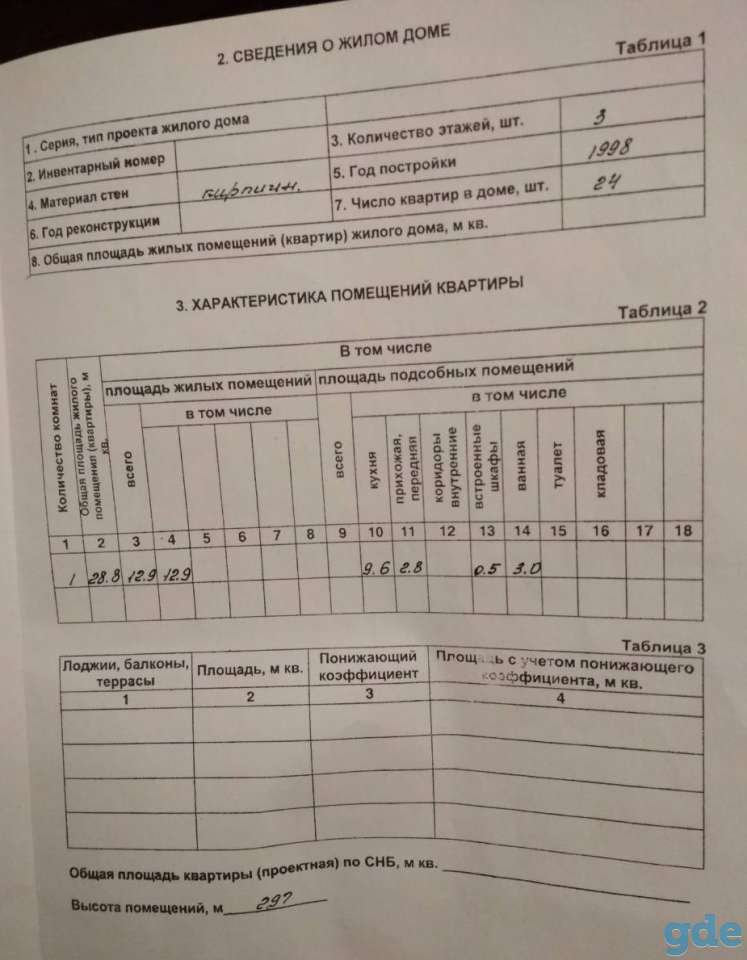 2. СВЕДЕНИЯ О ЖИЛОМ ДОМЕ
Таблица 1
1 . Серия, тип проекта жилого дома
2. Инвентарный номер
3. Количество этажей, шт. 3
4. Материал стен кирпичн.
5. Год постройки 1998
6. Год реконструкции
7. Число квартир в доме, шт. 24
8. Общая площадь жилых помещений (квартир) жилого дома, м кв.
3. ХАРАКТЕРИСТИКА ПОМЕЩЕНИЙ КВАРТИРЫ
Таблица 2
Количество комнат
Общая площадь жилого помещения (квартиры), м кв.
В том числе
площадь жилых помещений площадь подсобных помещений
всего
в том числе
всего
в том числе
кухня
прихожая, передняя
коридоры внутренние
встроенные шкафы
ванная
туалет
кладовая
1 2 3 4 5 6 7 8 9 10 11 12 13 14 15 16 17 18
1 28.8 12.9 12.9 9.6 2.8 0.5 3.0
Таблица 3
Лоджии, балконы, террасы
Площадь, м кв.
Понижающий коэффициент
Площадь с учетом понижающего коэффициента, м кв.
1 2 3 4
Общая площадь квартиры (проектная) по СНБ, м кв.
Высота помещений, м 297
gde